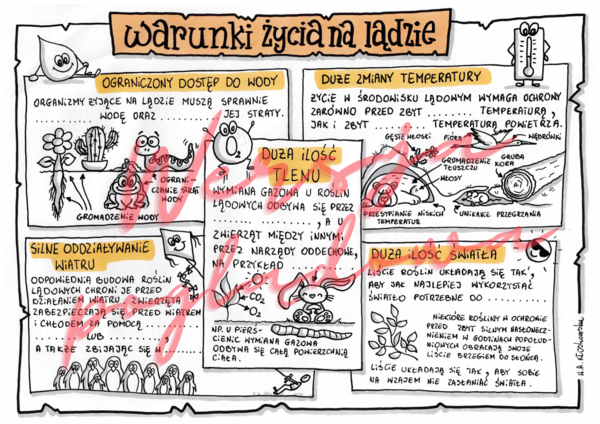 warunki życia na lądzie
OGRANICZONY DOSTĘP DO WODY
ORGANIZMY ŻYJĄCE NA LĄDZIE MUSZĄ SPRAWNIE
......... WODĘ ORAZ ......... JEJ STRATY.
OGRANI-
CZANIE STRAT
WODY
GROMADZENIE WODY
DUŻE ZMIANY TEMPERATURY
ŻYCIE W ŚRODOWISKU LĄDOWYM WYMAGA OCHRONY
ZARÓWNO PRZED ZBYT ........ TEMPERATURĄ,
JAK I ZBYT ........ TEMPERATURĄ POWIETRZA.
GĘSIE WŁOSKI
PIÓRA
WĘDRÓWKI
GROMADZENIE
TŁUSZCZU
GRUBA
KORA
WŁOSY
PRZESYPIANIE NISKICH
TEMPERATUR
UNIKANIE PRZEGRZANIA
O2
DUŻA ILOŚĆ
TLENU
WYMIANA GAZOWA U ROŚLIN
LĄDOWYCH ODBYWA SIĘ PRZEZ
................, A U
ZWIERZĄT MIĘDZY INNYMI
PRZEZ NARZĄDY ODDECHOWE,
NA PRZYKŁAD ..........
O2
CO2
O2
NP. U PIERŚ-
CIENIC WYMIANA GAZOWA
ODBYWA SIĘ CAŁĄ POWIERZCHNIĄ
CIAŁA.
SILNE ODDZIAŁYWANIE
WIATRU
ODPOWIEDNIA BUDOWA ROŚLIN
LĄDOWYCH CHRONI JE PRZED
DZIAŁANIEM WIATRU. ZWIERZĘTA
ZABEZPIECZAJĄ SIĘ PRZED WIATREM
I CHŁODEM ZA POMOCĄ ......
......... LUB .........,
A TAKŻE ZBIJAJĄC SIĘ W ........
DUŻA ILOŚĆ ŚWIATŁA
LIŚCIE ROŚLIN UKŁADAJĄ SIĘ TAK,
ABY JAK NAJLEPIEJ WYKORZYSTAĆ
ŚWIATŁO POTRZEBNE DO ..........
NIEKTÓRE ROŚLINY W OCHRONIE
PRZED ZBYT SILNYM NASŁONECZ-
NIENIEM W GODZINACH POPOŁUD-
NIOWYCH OBRACAJĄ SWOJE
LIŚCIE BRZEGIEM DO SŁOŃCA.
LIŚCIE UKŁADAJĄ SIĘ TAK, ABY SOBIE
NA WZAJEM NIE ZASŁANIAĆ ŚWIATŁA.
Wersja
poglądowa